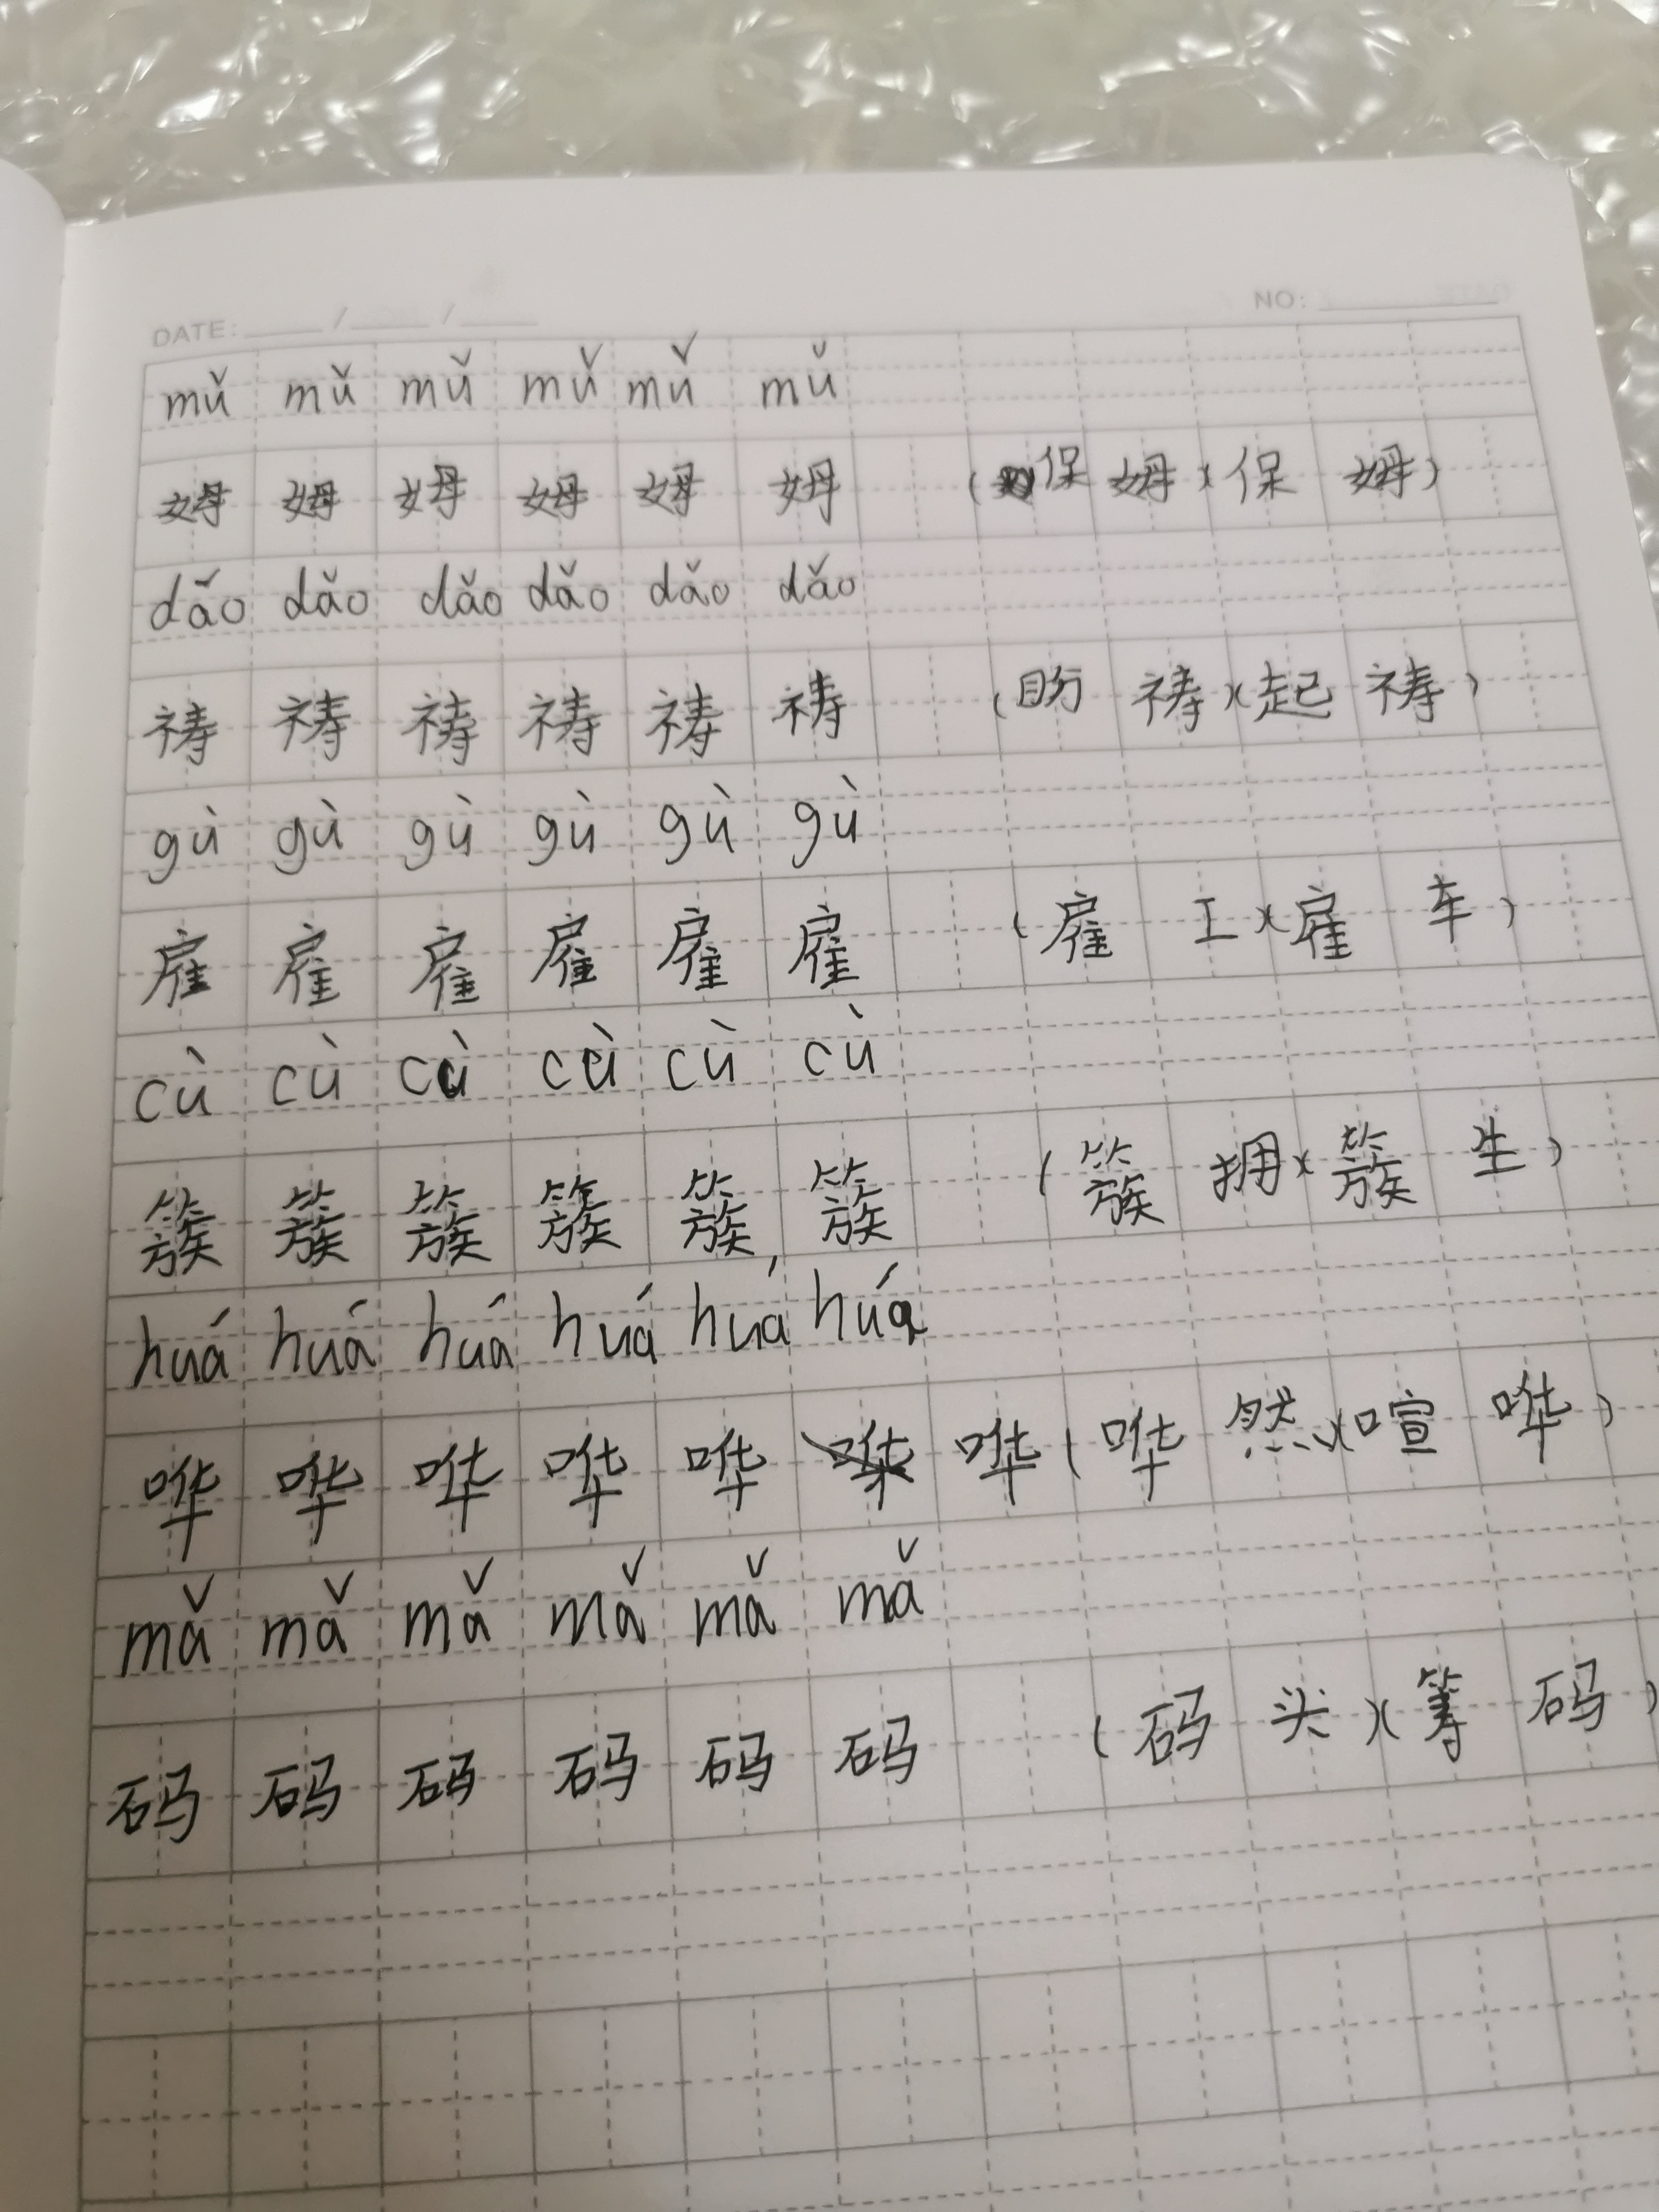 DATE: / / NO:
mǔ mǔ mǔ mǔ mǔ mǔ
姆 姆 姆 姆 姆 姆 (保姆)(保姆)
dǎo dǎo dǎo dǎo dǎo dǎo
祷 祷 祷 祷 祷 祷 (盼祷)(起祷)
gù gù gù gù gù gù
雇 雇 雇 雇 雇 雇 (雇工)(雇车)
cù cù cù cù cù cù
簇 簇 簇 簇 簇 簇 (簇拥)(簇生)
huá huá huá huá huá huá
哗 哗 哗 哗 哗 哗 (哗然)(喧哗)
mǎ mǎ mǎ mǎ mǎ mǎ
码 码 码 码 码 码 (码头)(筹码)